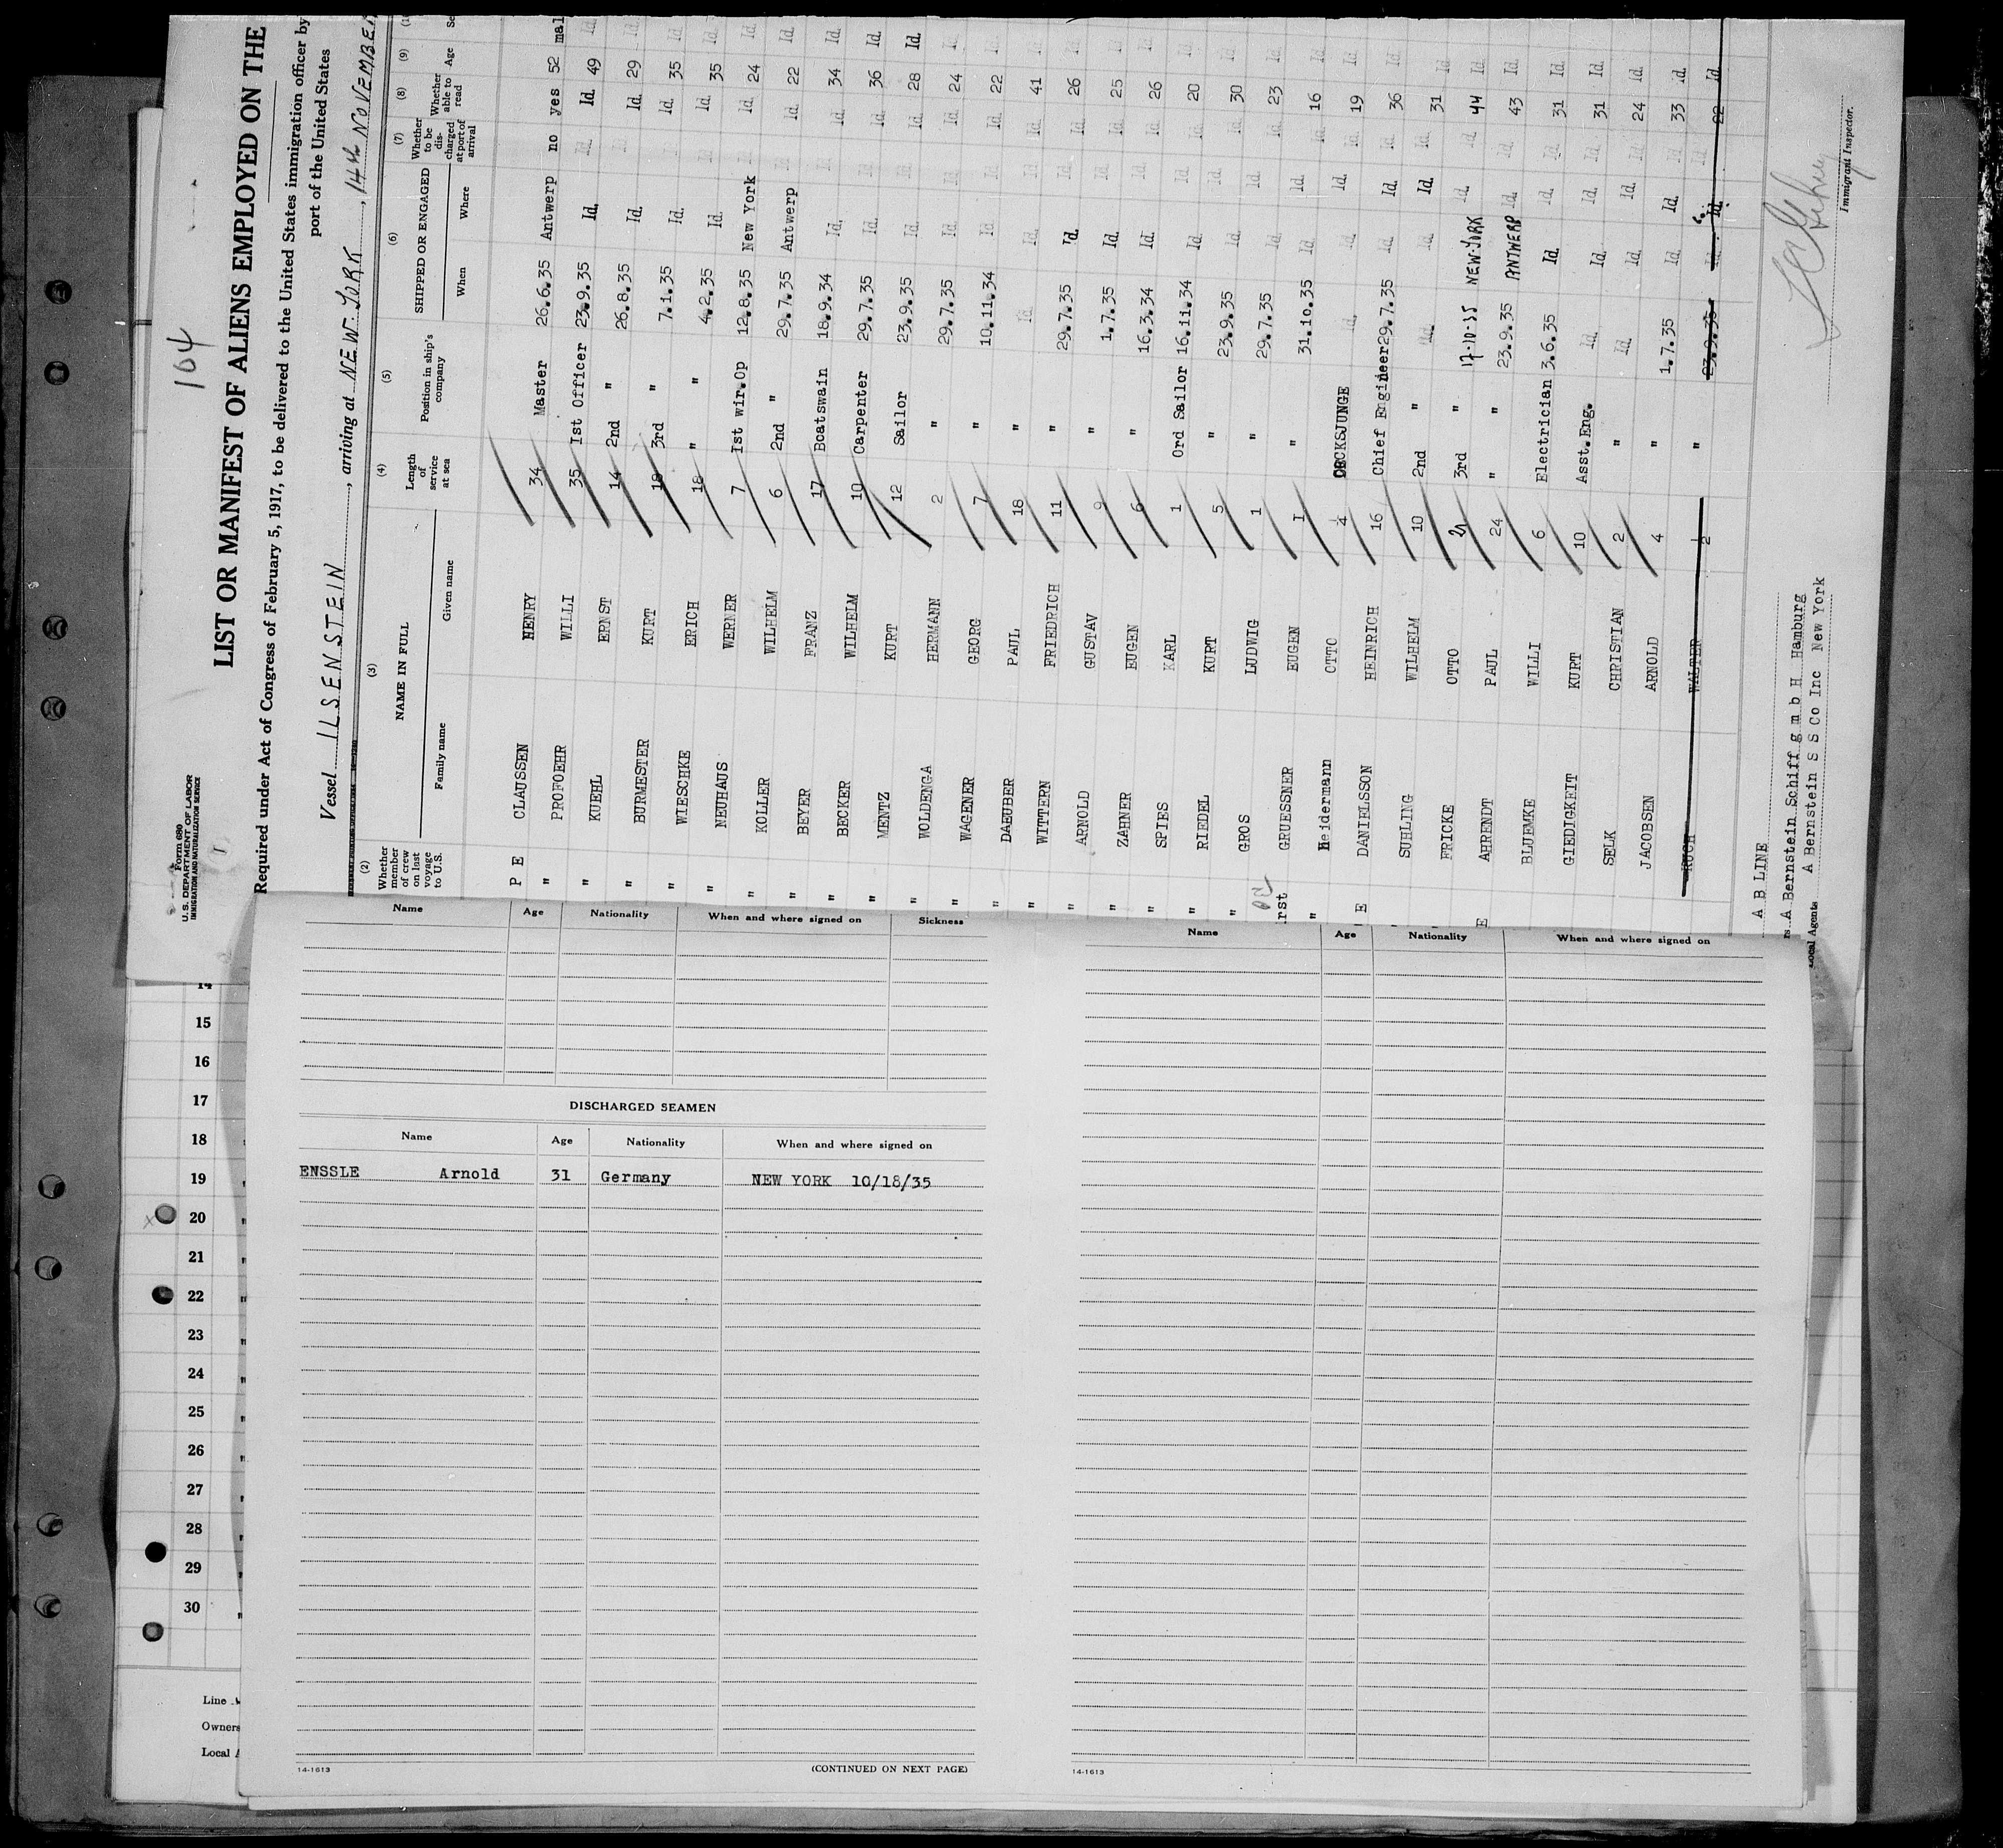 104
Form 680
U. S. DEPARTMENT OF LABOR
IMMIGRATION AND NATURALIZATION SERVICE
LIST OR MANIFEST OF ALIENS EMPLOYED ON THE
Required under Act of Congress of February 5, 1917, to be delivered to the United States immigration officer by
port of the United States
Vessel ILSENSTEIN, arriving at NEW-YORK, 14th NOVEMBER
(2) (3) (4) (5) (6) (7) (8) (9)
Whether member of crew on last voyage to U.S. NAME IN FULL Family name Given name Length of service at sea Position in ship's company SHIPPED OR ENGAGED When Where Whether to be discharged at port of arrival Whether able to read Age
P E CLAUSSEN HENRY 34 Master 26.6.35 Antwerp no yes 52 mal
" PROFOEHR WILLI 35 Ist Officer 23.9.35 Id. Id. Id. 49 Id.
" KUEHL ERNST 14 2nd " 26.8.35 Id. Id. Id. 29 Id.
" BURMESTER KURT 18 3rd " 7.1.35 Id. Id. Id. 35 Id.
" WIESCHKE ERICH 18 " " 4.2.35 Id. Id. Id. 35 Id.
" NEUHAUS WERNER 7 Ist wir.Op 12.8.35 New York Id. Id. 24 Id.
" KOLLER WILHELM 6 2nd " 29.7.35 Antwerp Id. Id. 22 Id.
" BEYER FRANZ 17 Boatswain 18.9.34 Id. Id. Id. 34 Id.
" BECKER WILHELM 10 Carpenter 29.7.35 Id. Id. Id. 36 Id.
" MENTZ KURT 12 Sailor 23.9.35 Id. Id. Id. 28 Id.
" WOLDENGA HERMANN 2 " 29.7.35 Id. Id. Id. 24 Id.
" WAGENER GEORG 7 " 10.11.34 Id. Id. Id. 22 Id.
" DAEUBER PAUL 18 " Id. Id. Id. Id. 41 Id.
" WITTERN FRIEDRICH 11 " 29.7.35 Id. Id. Id. 26 Id.
" ARNOLD GUSTAV 9 " 1.7.35 Id. Id. Id. 25 Id.
" ZAHNER EUGEN 6 " 16.3.34 Id. Id. Id. 26 Id.
" SPIES KARL 1 Ord Sailor 16.11.34 Id. Id. Id. 20 Id.
" RIEDEL KURT 5 " 23.9.35 Id. Id. Id. 30 Id.
" GROS LUDWIG 1 " 29.7.35 Id. Id. Id. 23 Id.
rst GRUESSNER EUGEN I " 31.10.35 Id. Id. Id. 16 Id.
" Heidermann OTTO 4 DECKSJUNGE Id. Id. Id. Id. 19 Id.
E DANIELSSON HEINRICH 16 Chief Engineer 29.7.35 Id. Id. Id. 36 Id.
SUHLING WILHELM 10 2nd " Id. Id. Id. Id. 31 Id.
FRICKE OTTO 21 3rd " 17-10-35 NEW-YORK Id. Id. 44 Id.
E AHRENDT PAUL 24 " " 23.9.35 ANTWERP Id. Id. 43 Id.
BLUEMKE WILLI 6 Electrician 3.6.35 Id. Id. Id. 31 Id.
GIEDIGKEIT KURT 10 Asst.Eng. Id. Id. Id. Id. 31 Id.
SELK CHRISTIAN 2 " Id. Id. Id. Id. 24 Id.
JACOBSEN ARNOLD 4 " 1.7.35 Id. Id. Id. 33 Id.
KUCH WALTER 2 " 23.9.35 Id. Id. Id. 22 Id.
A B LINE
rs A Bernstein Schiff g m b H Hamburg
Local Agents A Bernstein S S Co Inc New York
Immigrant Inspector.
Name Age Nationality When and where signed on Sickness
DISCHARGED SEAMEN
Name Age Nationality When and where signed on
ENSSLE Arnold 31 Germany NEW YORK 10/18/35
14-1613 (CONTINUED ON NEXT PAGE)
Name Age Nationality When and where signed on
14-1613
14
15
16
17
18
19
20
21
22
23
24
25
26
27
28
29
30
Line
Owners
Local A